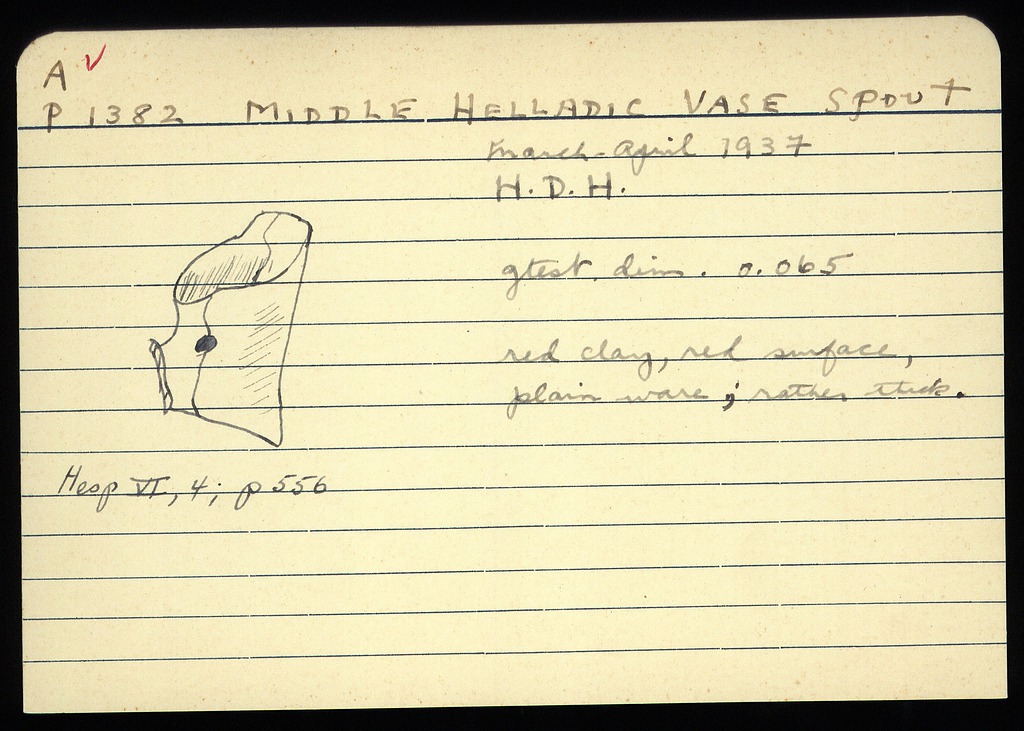 A ✓
P 1382 MIDDLE HELLADIC VASE SPOUT
March-April 1937
H. D. H.
gtest. dim. 0.065
red clay, red surface,
plain ware; rather thick.
Hesp VI, 4; p 556